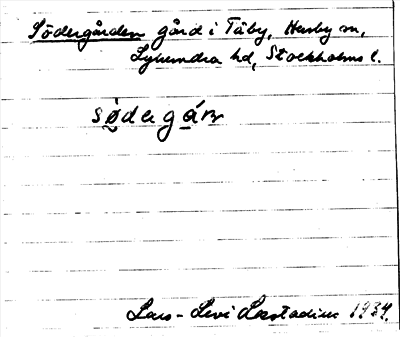 Södergården gård i Täby, Husby sn,
Lyhundra hd, Stockholms l.
sødagáɳ
Lars-Levi Læstadius 1934.